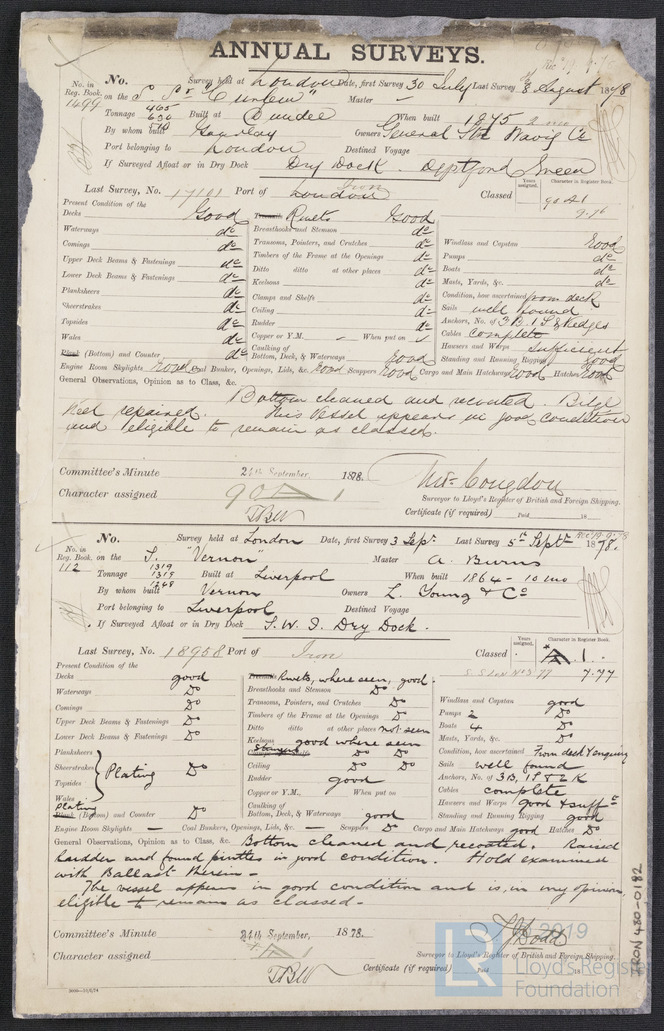 ANNUAL SURVEYS.
No. in Reg. Book. No. Survey held at London Date, first Survey 30 July Last Survey 8 August 1878
1499 on the S. Sr "Curlew" Master —
Tonnage 465 630 Built at Dundee When built 1875
By whom built Gourlay Owners General Stm Navig Co
Port belonging to London Destined Voyage
If Surveyed Afloat or in Dry Dock Dry Dock. Deptford Green
Last Survey, No. 17101 Port of London Iron Classed 90 A1
Years assigned. Character in Register Book.
Present Condition of the
Decks Good Rivets Good
Waterways do Breasthooks and Stemson do
Comings do Transoms, Pointers, and Crutches do Windlass and Capstan Good
Upper Deck Beams & Fastenings do Timbers of the Frame at the Openings do Pumps do
Lower Deck Beams & Fastenings do Ditto ditto at other places do Boats do
Planksheers do Keelsons do Masts, Yards, &c. do
Sheerstrakes do Clamps and Shelfs do Condition, how ascertained from deck
Topsides do Ceiling do Sails well found
Wales do Rudder do Anchors, No. of 3 B. 1 S & Kedges
Plank (Bottom) and Counter do Copper or Y.M. — When put on ✓ Cables complete
Caulking of Bottom, Deck, & Waterways Good Hawsers and Warps sufficient
Standing and Running Rigging good
Engine Room Skylights Good Coal Bunker, Openings, Lids, &c. Good Scuppers Good Cargo and Main Hatchways Good Hatches Good
General Observations, Opinion as to Class, &c.
Bottom cleaned and recoated. Bilge
keel repaired. This Vessel appears in good condition
and eligible to remain as classed.
Committee's Minute 24th September, 1878.
Character assigned 90 A 1
TBW
Thos. Congdon
Surveyor to Lloyd's Register of British and Foreign Shipping.
Certificate (if required) Paid 18
No. in Reg. Book. No. Survey held at London Date, first Survey 3 Sept. Last Survey 5th Septr 1878.
Rec 19.9.78
112 on the S. "Vernon" Master A. Burns
Tonnage 1319 1319 1268 Built at Liverpool When built 1864 - 10 mo
By whom built Vernon Owners L. Young & Co
Port belonging to Liverpool Destined Voyage
If Surveyed Afloat or in Dry Dock S. W. I. Dry Dock.
Last Survey, No. 18958 Port of Iron Classed A. 1.
Years assigned. Character in Register Book.
S.S Lon No 3-77 7.77
Present Condition of the
Decks good Rivets, where seen, good.
Waterways Do Breasthooks and Stemson Do
Comings Do Transoms, Pointers, and Crutches Do Windlass and Capstan good
Upper Deck Beams & Fastenings Do Timbers of the Frame at the Openings Do Pumps 2 Do
Lower Deck Beams & Fastenings Do Ditto ditto at other places not seen Boats 4 Do
Keelsons good where seen Masts, Yards, &c. Do
Planksheers Stringers Do Do Condition, how ascertained From deck & enquiry
Sheerstrakes Plating Do Ceiling Do Do Sails well found
Topsides Rudder good Anchors, No. of 3 B, 1 S & 2 K
Wales Copper or Y.M. When put on Cables complete
Plating Plank (Bottom) and Counter Do Caulking of Bottom, Deck, & Waterways good Hawsers and Warps good & sufft
Standing and Running Rigging good
Engine Room Skylights — Coal Bunkers, Openings, Lids, &c. — Scuppers Do Cargo and Main Hatchways good Hatches Do
General Observations, Opinion as to Class, &c. Bottom cleaned and recoated. Raised
rudder and found pintles in good condition. Hold examined
with Ballast therein -
The vessel appears in good condition and is, in my opinion,
eligible to remain as classed -
Committee's Minute 24th September, 1878.
Character assigned A 1
TBW
T J Dodd
Surveyor to Lloyd's Register of British and Foreign Shipping.
Certificate (if required) Paid 18
IRON 480-0182
LR 2019
Lloyd's Register
Foundation